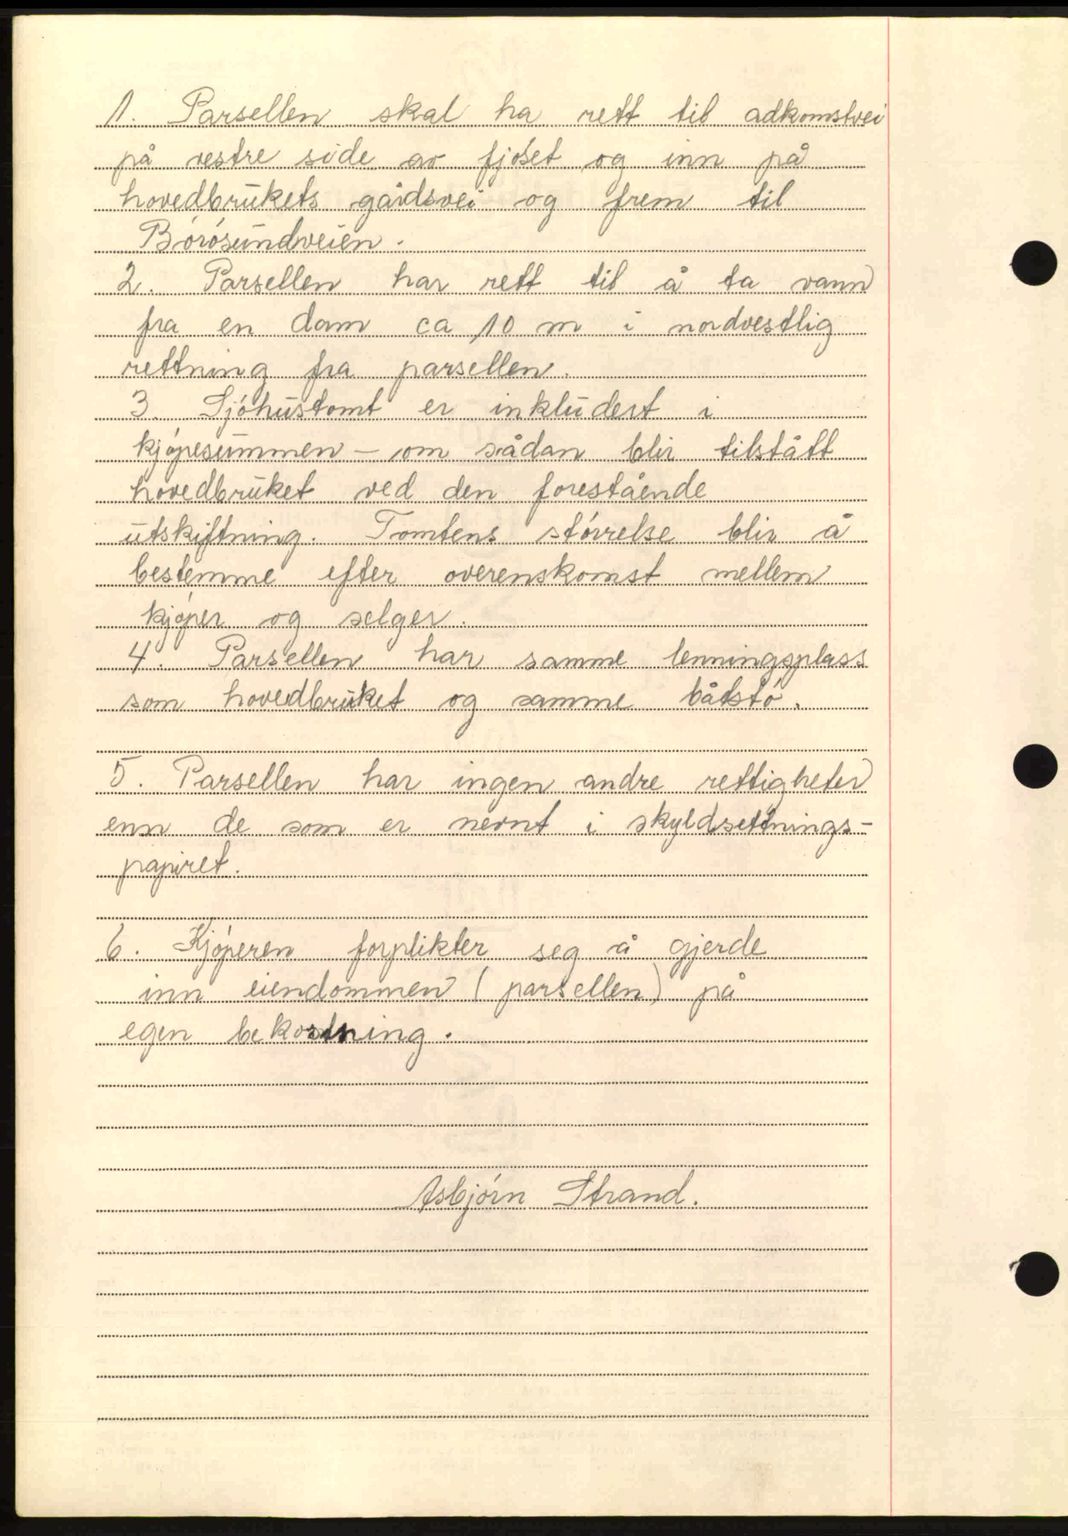 1. Parsellen skal ha rett til adkomstvei
på vestre side av fjøset og inn på
hovedbrukets gårdsvei og frem til
Børøsundveien.
2. Parsellen har rett til å ta vann
fra en dam ca 10 m i nordvestlig
rettning fra parsellen.
3. Sjøhustomt er inkludert i
kjøpesummen – om sådan blir tilstått
hovedbruket ved den forestående
utskiftning. Tomtens størrelse blir å
bestemme efter overenskomst mellem
kjøper og selger.
4. Parsellen har samme lenningsplass
som hovedbruket og samme båtstø.
5. Parsellen har ingen andre rettigheter
enn de som er nevnt i skyldsettnings-
papiret.
6. Kjøperen forplikter seg å gjerde
inn eiendommen (parsellen) på
egen bekostning.
Asbjørn Strand.